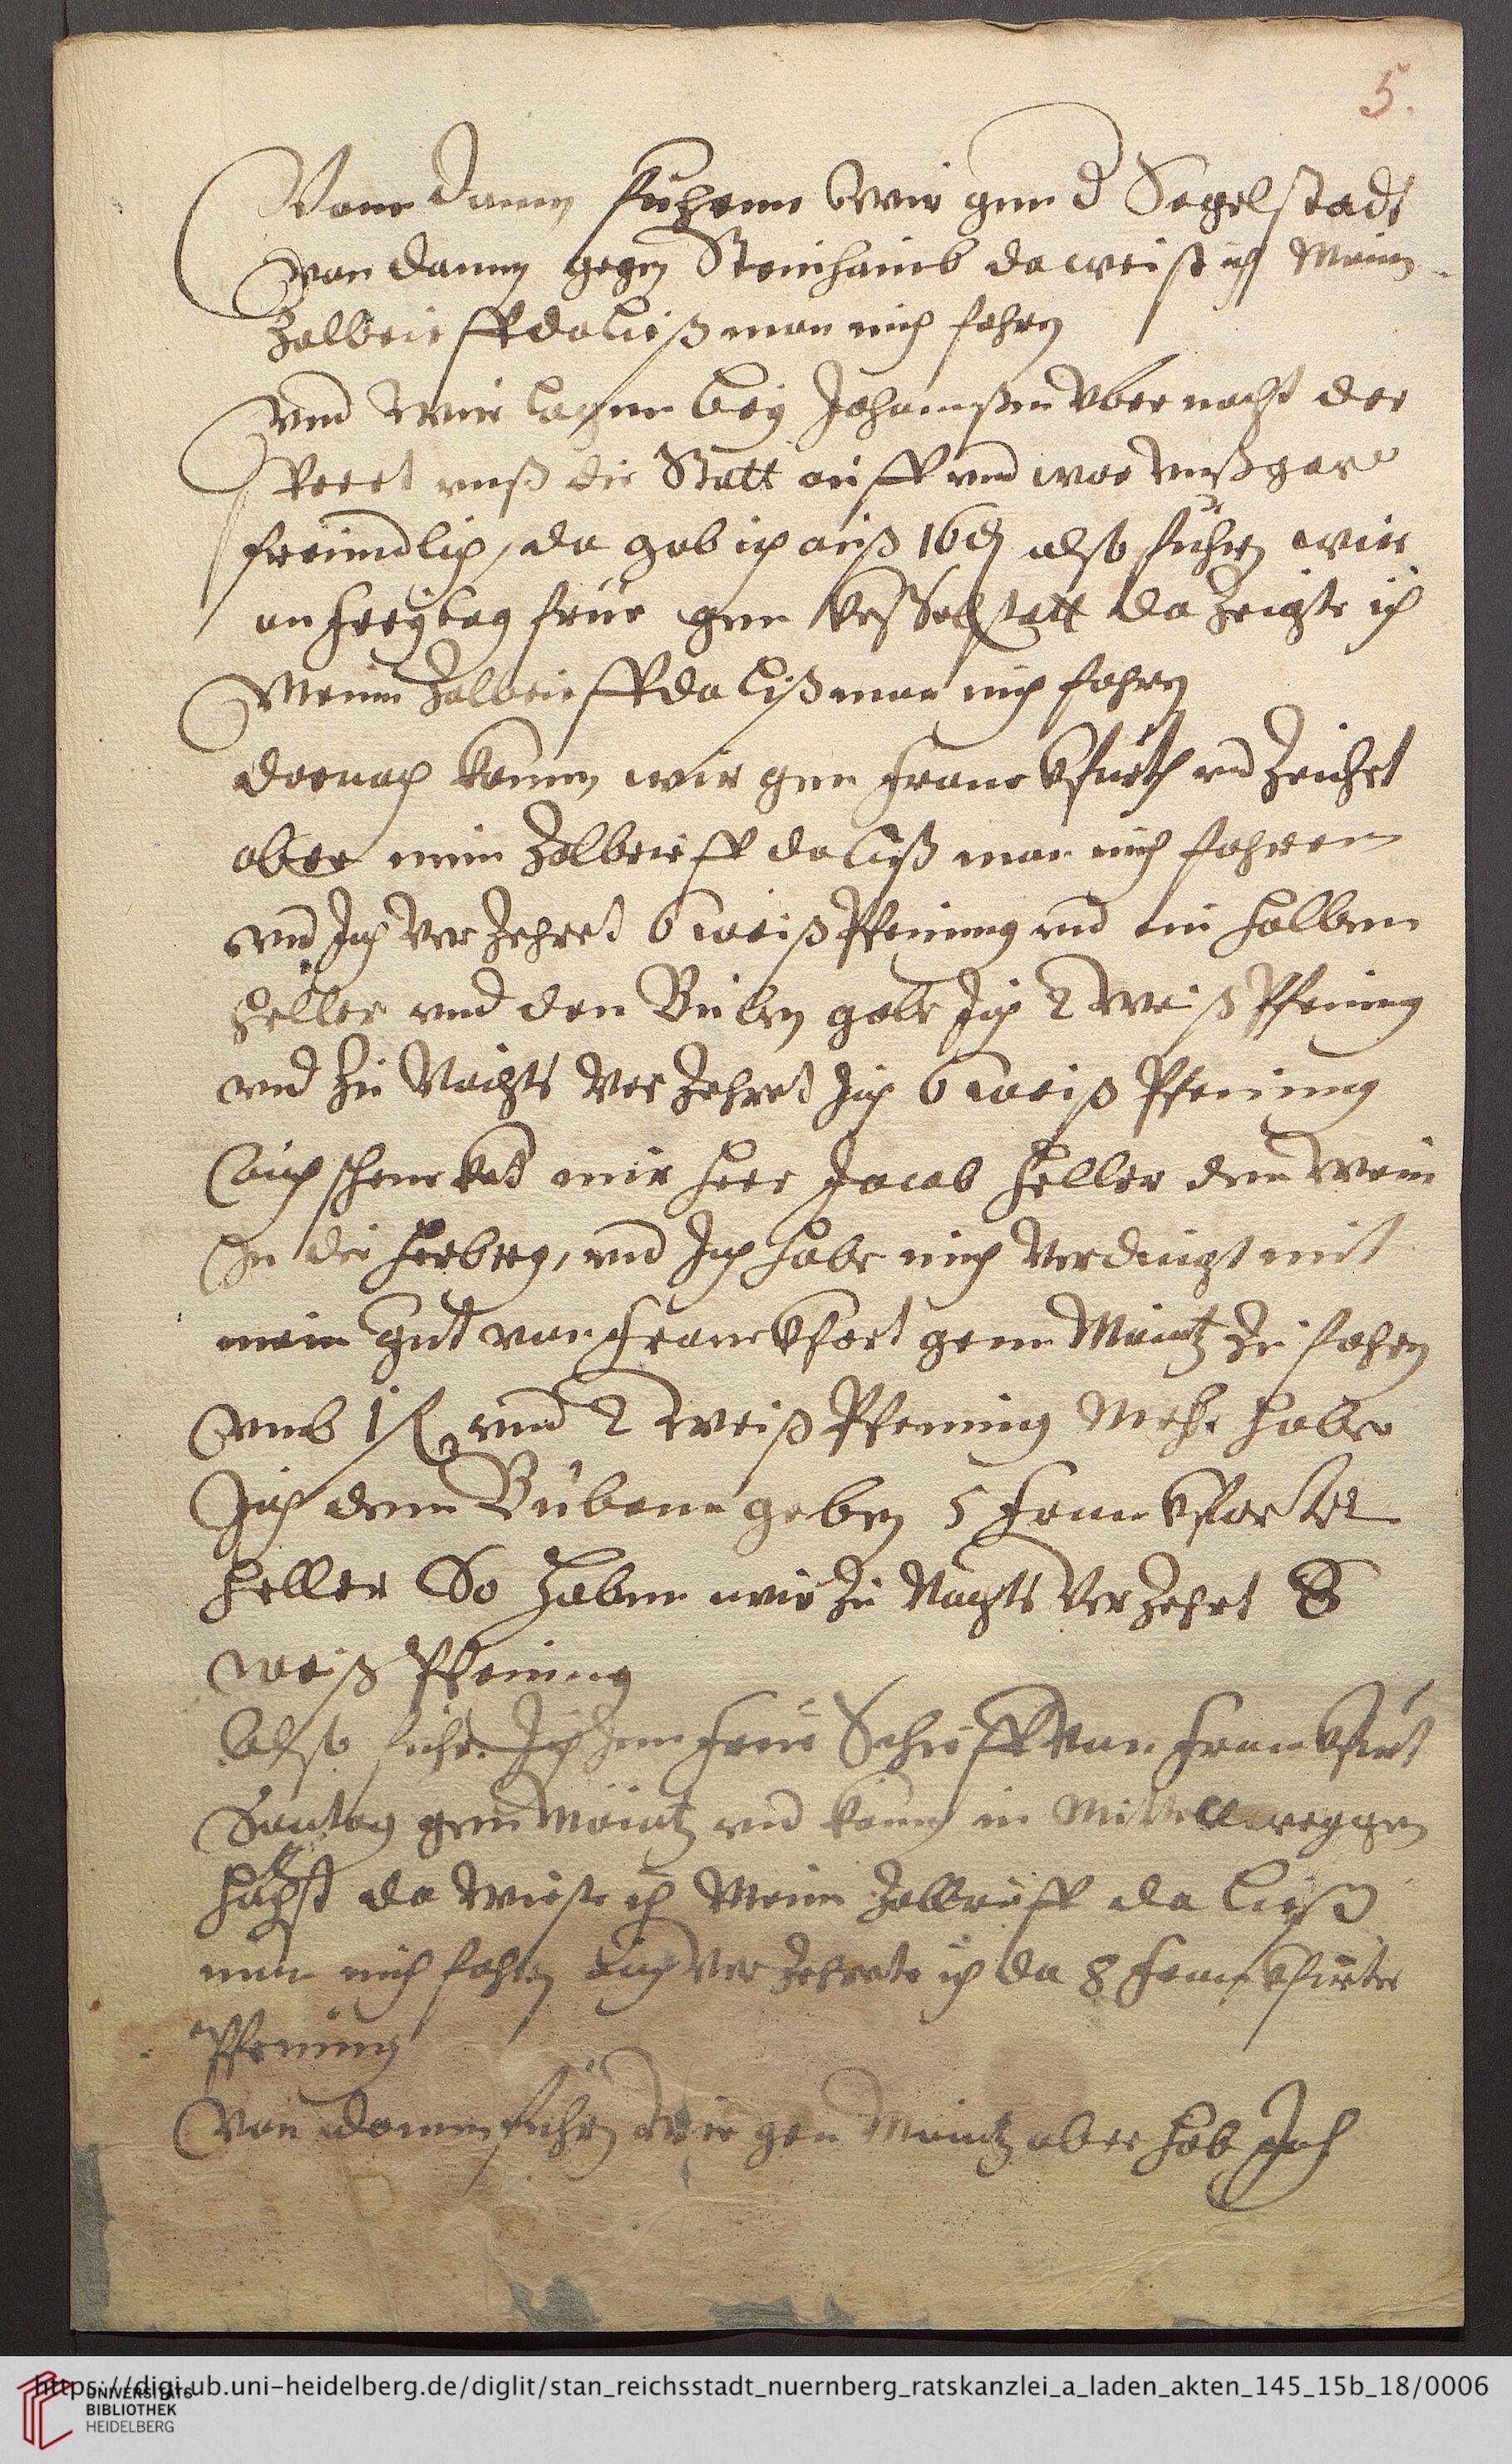 5.
Vonn dannen fuhrenn Wir genn Segelstadt
von dannen gegen Steinhaimb da weist ich Meinen
Zolbrieff da ließ man mich fahren
Vnd Wir lagenn bey Johannßen Vber nacht der
sperrt vnß die Statt auff vnd war vnß gar
freündlich, da gab ich auß 16 ₰ also fuhren wir
an freÿtag früe genn Kesselstatt da Zeigte ich
Meinn Zolbrieff da liß man mich fahren
darnach kamen wir genn Franckfurth vnd Zeichet
aber mein Zolbrieff da ließ man mich fahrenn
vnd Ich Ver Zehret 6 weiß Pfenning vnd ein halben
heller vnd den Buben gabe Ich 2 Weiß Pfening
vnd Zu Nachts Ver Zehret Ich 6 weiß Pfenning
Auch schencket mir Herr Jacob Heller den Wein
In die Herberg, vnd Ich habe mich Verdingt mit
mein Gut von Franckfort genn Maintz Zu fahren
vmb 1 fl vnd 2 weiß Pfenning Mehr habe
Ich denn Bubenn geben 5 Franckforter
heller So habenn wir Zu Nachts Ver Zehrt 8
weiß Pfenning
Also fuhr Ich Inn Frue Schieff Von Franckfurt
Sontag genn Maintz vnd kamen in Mittell weggen
Höchst da Wieste ich Meinn Zolbrieff da ließ
man mich fahren auch Ver Zehrete ich da 8 Franckfurter
Pfenning
Von dannen fuhren Wir gen Maintz aber hab Ich
https://digi.ub.uni-heidelberg.de/diglit/stan_reichsstadt_nuernberg_ratskanzlei_a_laden_akten_145_15b_18/0006
UNIVERSITÄTS-
BIBLIOTHEK
HEIDELBERG